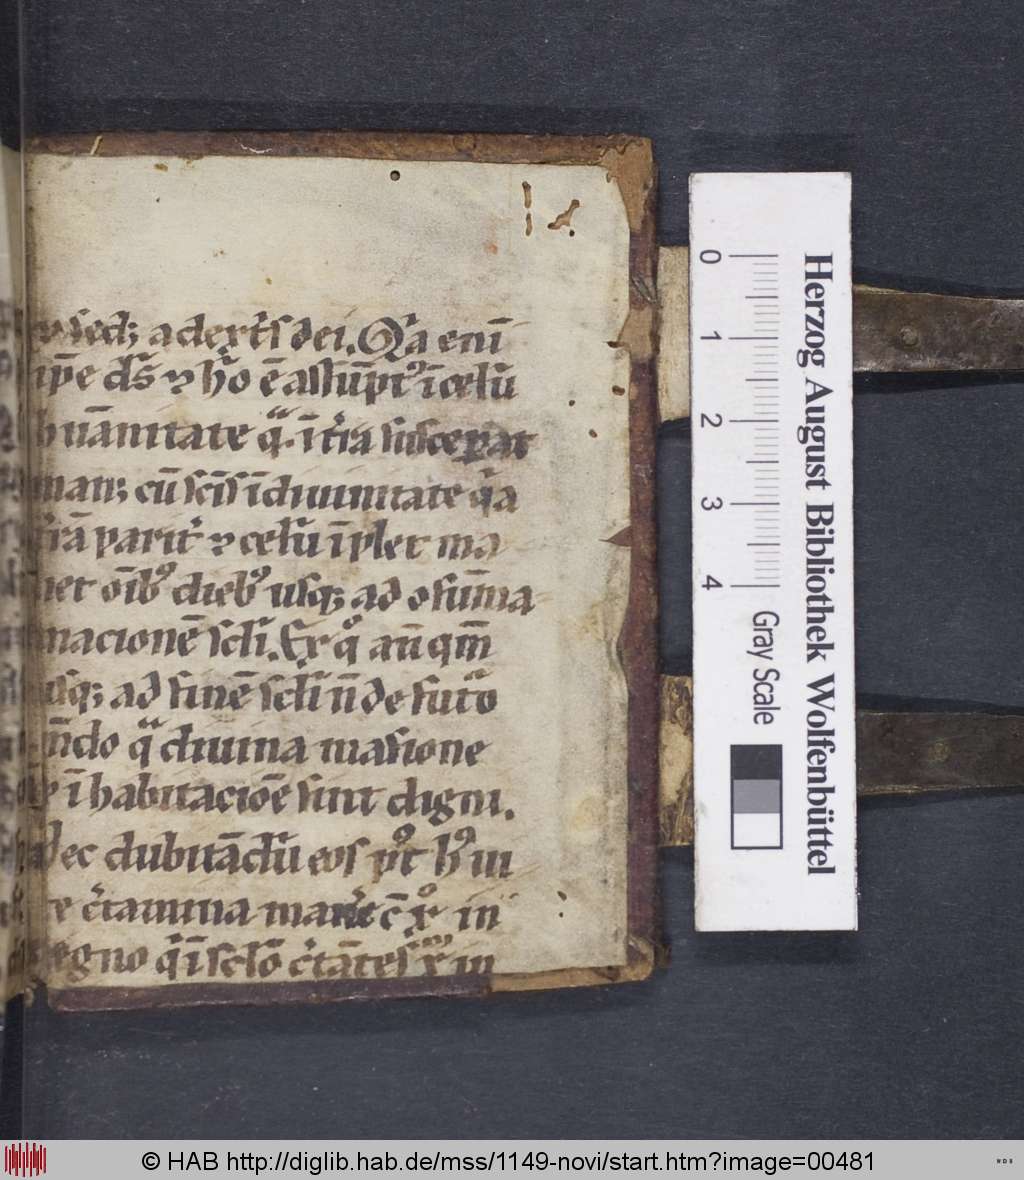 sedꝫ a dextꝭs dei. Qͥa eni̅
ip̅e ds̅ ⁊ hͦo e̅ assu̅ptꝰ i̅ celu̅
huma̅nitate qͣ. i̅ tꝰra susceperat
manꝫ cu̅ sc̅is i̅ diuinitate qͣ
parit̉ ⁊ celu̅ i̅plet ma
net oi̅bꝰ diebꝰ usqꝫ ad ɔsu̅ma
macione̅ scl̅i. Ex qͦ au̅ qm̅
usqꝫ ad fine̅ scl̅i n̅ de futͦo
qͣ diuina mansione
⁊ i̅habitacio̅e sint digni.
Nec dubita̅du̅ eos pꝰt hꝰ ui
te c̉tamina mane̅ c̅ xͦ in
regno qͥ i̅ scl̅o c̉ta̅tes xͫ in
Herzog August Bibliothek Wolfenbüttel
0 1 2 3 4
Gray Scale
© HAB http://diglib.hab.de/mss/1149-novi/start.htm?image=00481